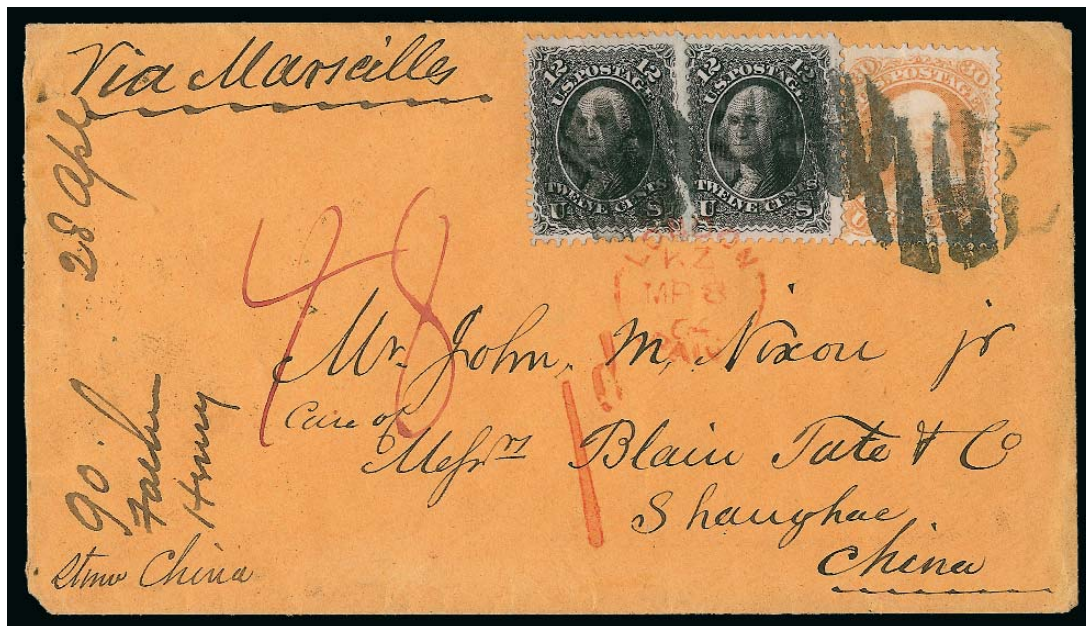 Via Marseilles
12 12
U.S. POSTAGE
TWELVE CENTS
U S
12 12
U.S. POSTAGE
TWELVE CENTS
U S
30
U.S. POSTAGE
48
LONDON
MR 8
PAID
Mr. John, M, Nixon jr
Care of
Messrs Blain Tate & Co
Shanghae
China
28 Apl
90
Father
Henry
Stmr China